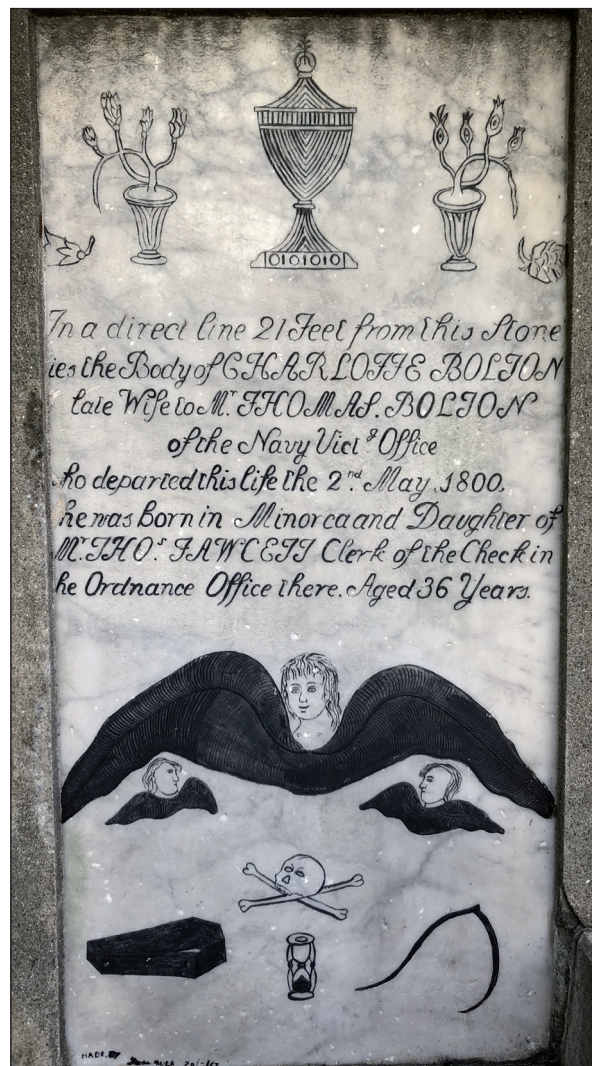 In a direct line 21 Feet from this Stone
ies the Body of CHARLOTTE BOLTON
late Wife to Mr. THOMAS. BOLTON
of the Navy Vict.g Office
ho departed this life the 2.nd May. 1800.
he was Born in Minorca and Daughter of
Mr. THO.s FAWCETT Clerk of the Check in
he Ordnance Office there. Aged 36 Years.
MADE. BY